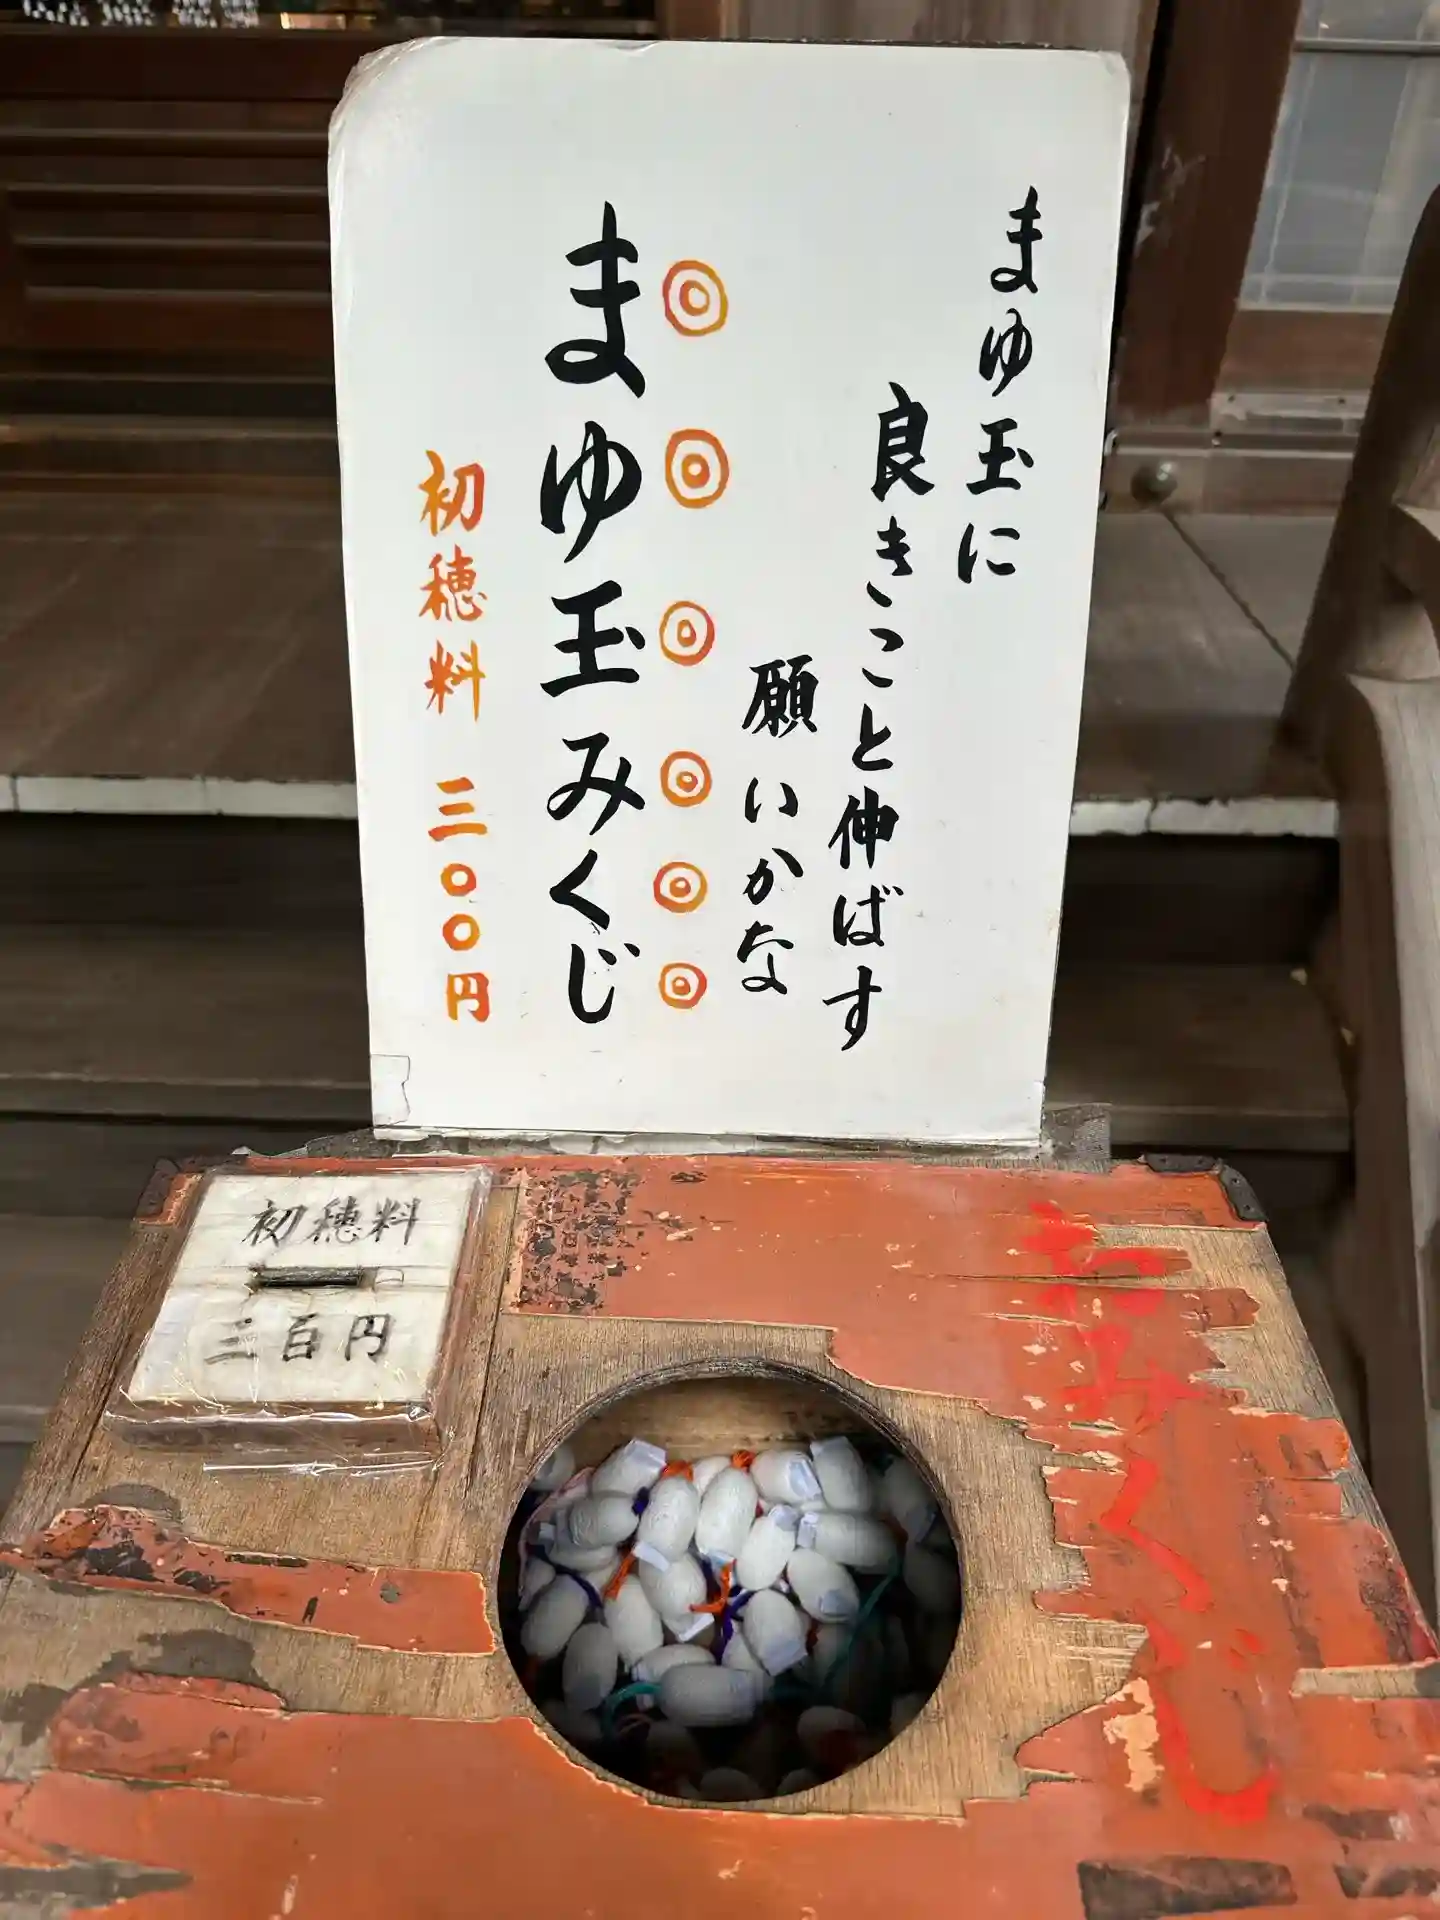 まゆ玉に
良きこと伸ばす
願いかな
まゆ玉みくじ
初穂料 三〇〇円
初穂料
三百円
おみくじ